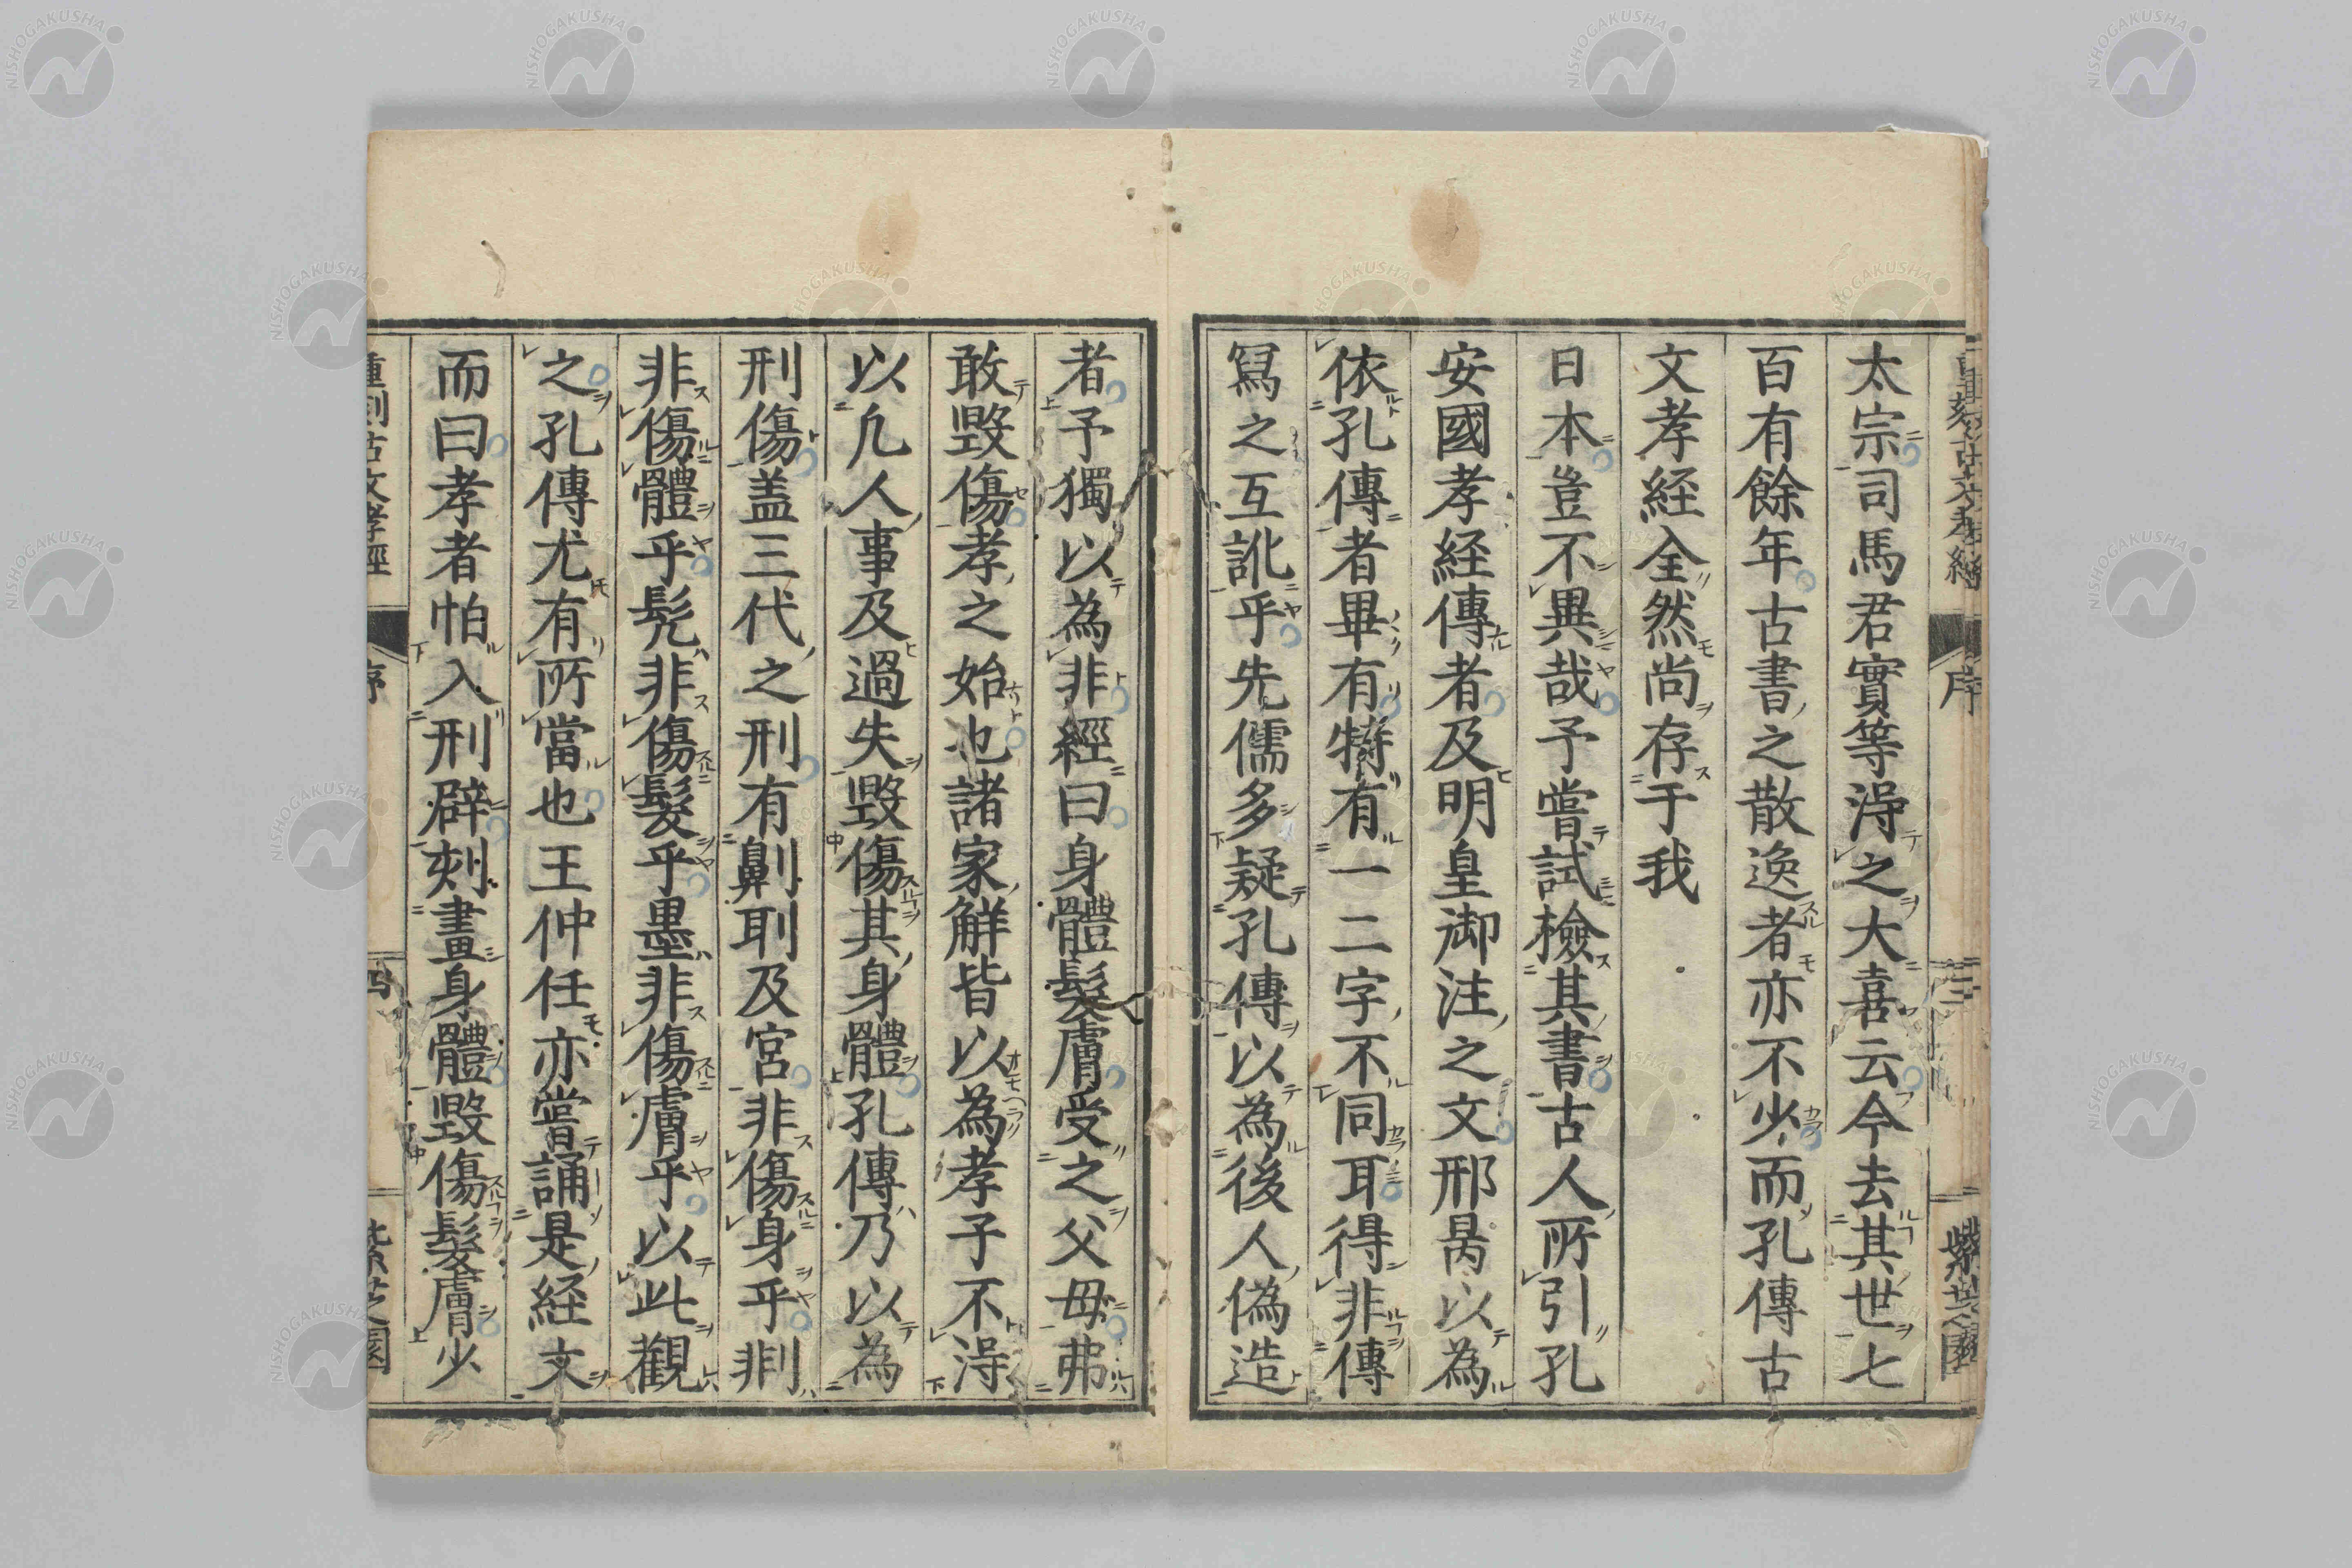 重刻古文孝經 序 三 紫芝園
太宗司馬君實等得之大喜云今去其世七
百有餘年古書之散逸者亦不少而孔傳古
文孝経全然尚存于我
日本豈不異哉予嘗試檢其書古人所引孔
安國孝経傳者及明皇御注之文邢昺以為
依孔傳者畢有特有一二字不同耳得非傳
寫之互訛乎先儒多疑孔傳以為後人偽造
者予獨以為非經曰身體髮膚受之父母弗
敢毀傷孝之始也諸家解皆以為孝子不得
以凢人事及過失毀傷其身體孔傳乃以為
刑傷盖三代之刑有劓刵及宮非傷身乎剕
非傷體乎髡非傷髮乎墨非傷膚乎以此觀
之孔傳尤有所當也王仲任亦嘗誦是経文
而曰孝者怕入刑辟刻畫身體毀傷髮膚少
重刻古文孝經 序 四 紫芝園